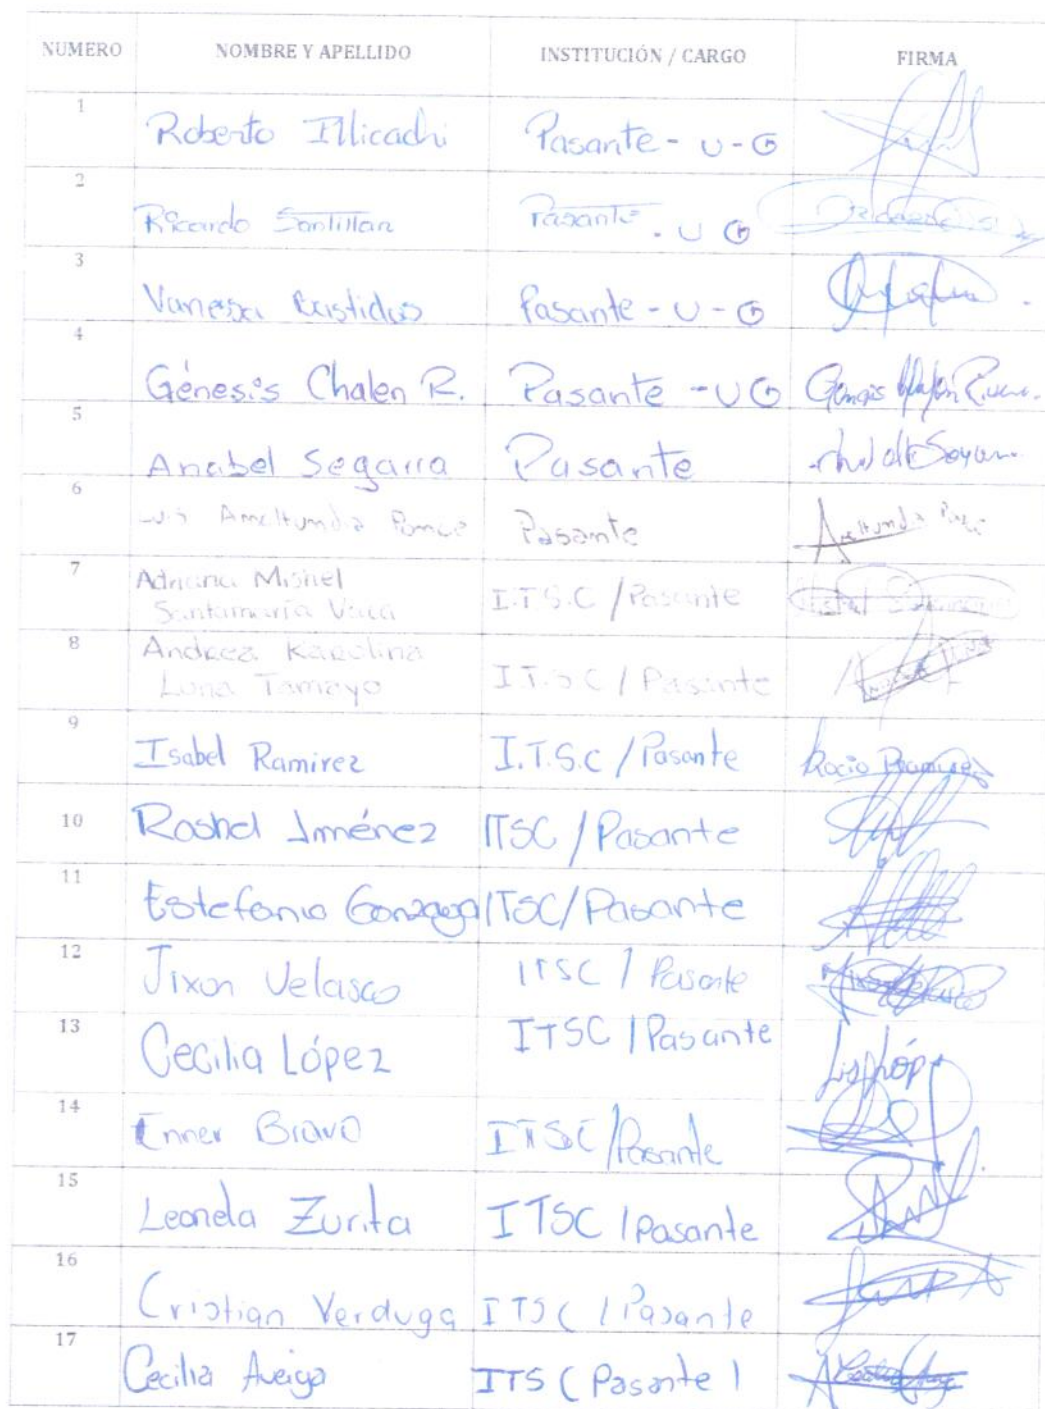 NUMERO NOMBRE Y APELLIDO INSTITUCIÓN / CARGO FIRMA
1 Roberto Illicachi Pasante - U - G
2 Ricardo Santillan Pasante - U G
3 Vanessa Bastidas Pasante - U - G
4 Génesis Chalen R. Pasante - U G Génesis
5 Anabel Segarra Pasante
6 Ponce Pasante
7 Adriana Mishel I.T.S.C / Pasante
Santamaría Vaca
8 Andrea Karolina I.T.S.C / Pasante
Luna Tamayo
9 Isabel Ramirez I.T.S.C / Pasante Rocio Ramirez
10 Rashel Jiménez ITSC / Pasante
11 Estefania Gonzaga ITSC / Pasante
12 Jixon Velasco ITSC / Pasante
13 Cecilia López ITSC / Pasante
14 Enner Bravo ITSC / Pasante
15 Leonela Zurita ITSC / Pasante
16 Cristian Verduga ITSC / Pasante
17 Cecilia Aveiga ITSC ( Pasante )